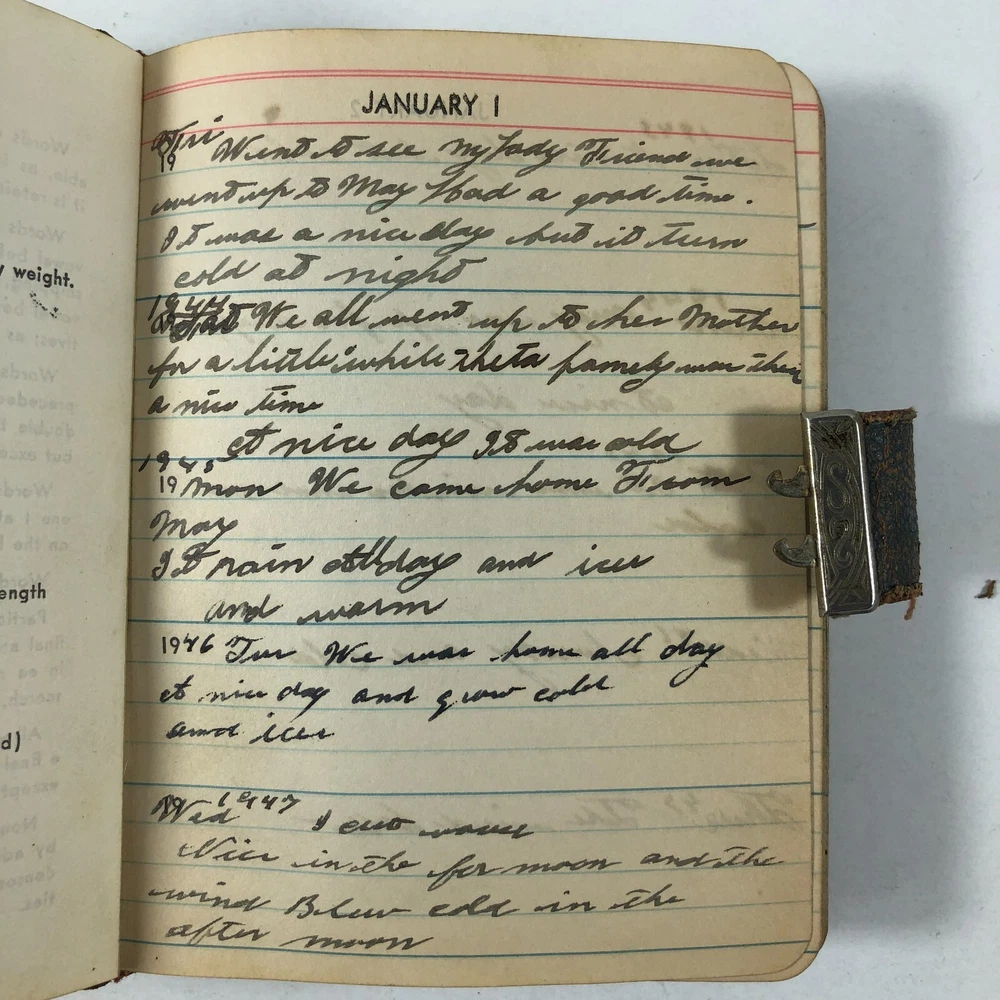 y weight.
ength
d)
JANUARY 1
Fri
19 Went to see My Lady Friend we
went up to May Had a good time.
It was a nice day but it turn
cold at night
1944
Sat We all went up to her Mother
for a little while Theta famely was their
a nice time
At nice day It was cold
1945
19 Mon We came home From
May
It rain all day and icer
and warm
1946 Tue We was home all day
at nice day and grow cold
and icer
19 Wed 1947 I cut
Nice in the for moon and the
wind Blew cold in the
after moon